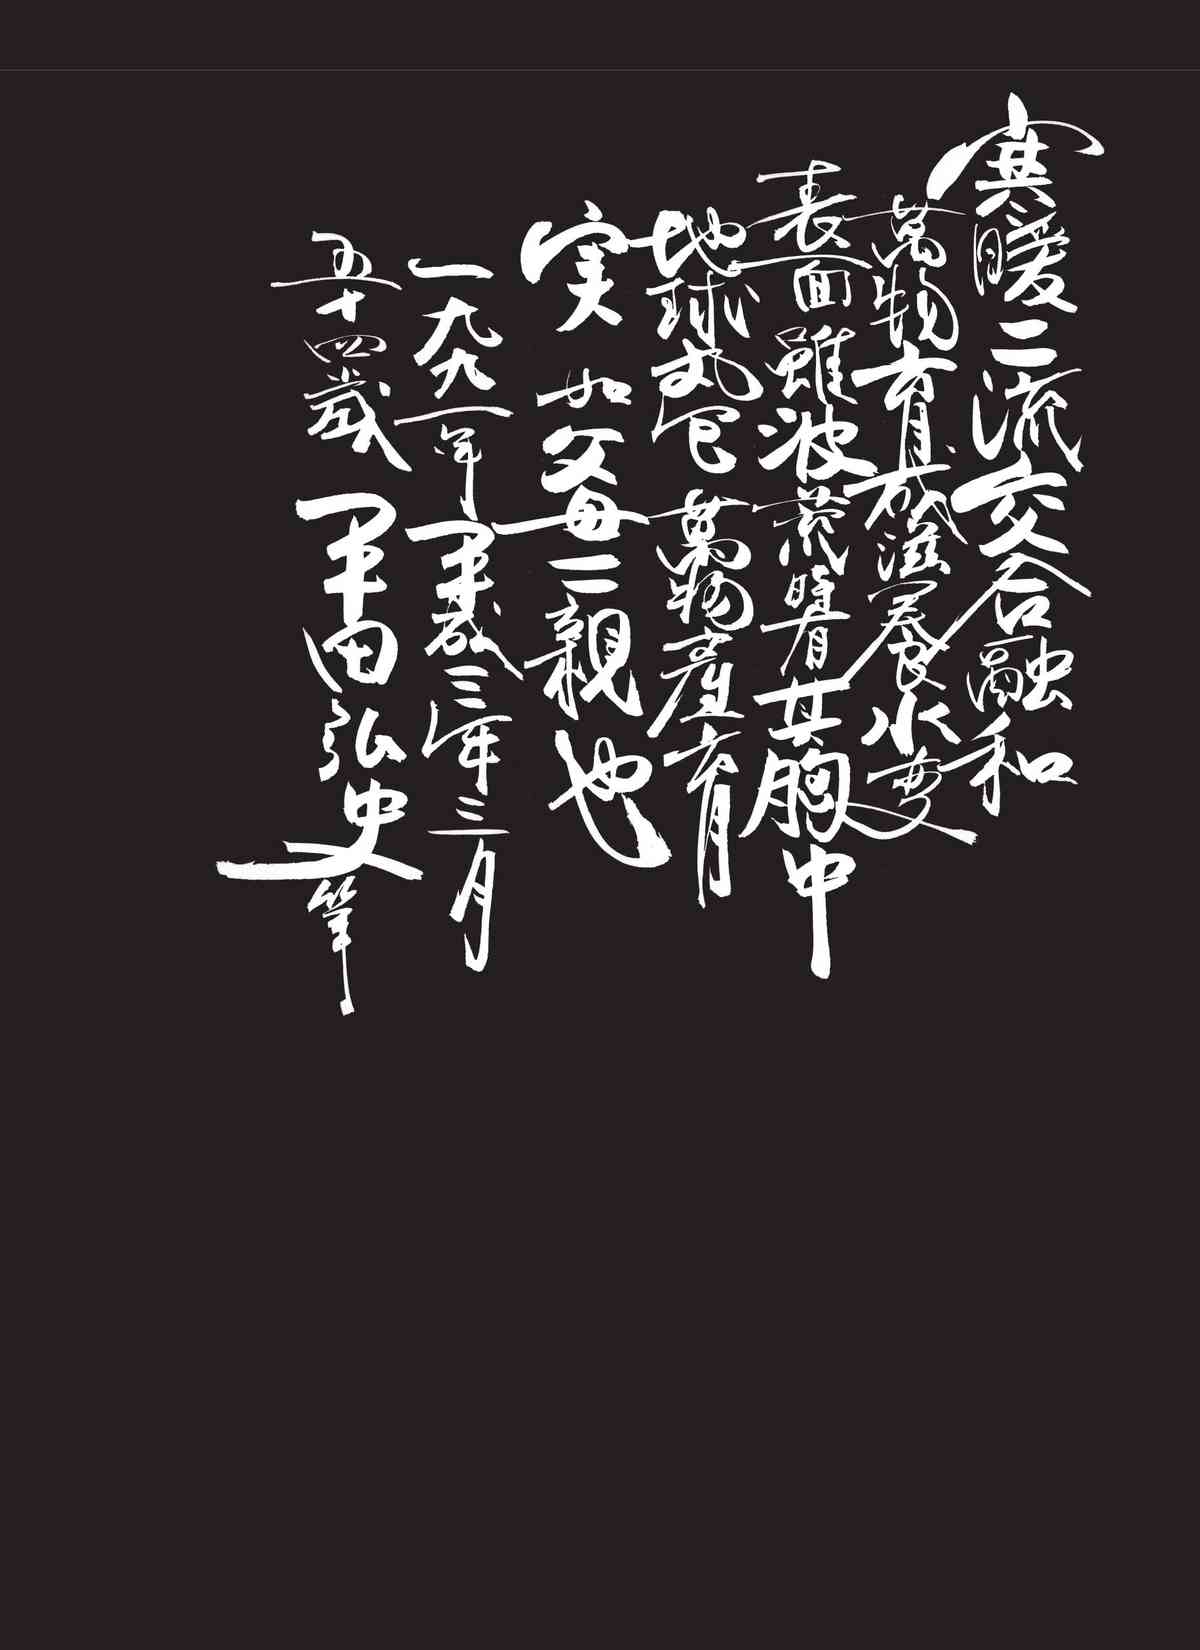 寒暖二流交合融和
萬物育成滋養水変
表面雖波荒時有其胸中
地球丸包萬物産育
実如父母二親也
一九九一年平成三年三月
五十四歳平田弘史筆